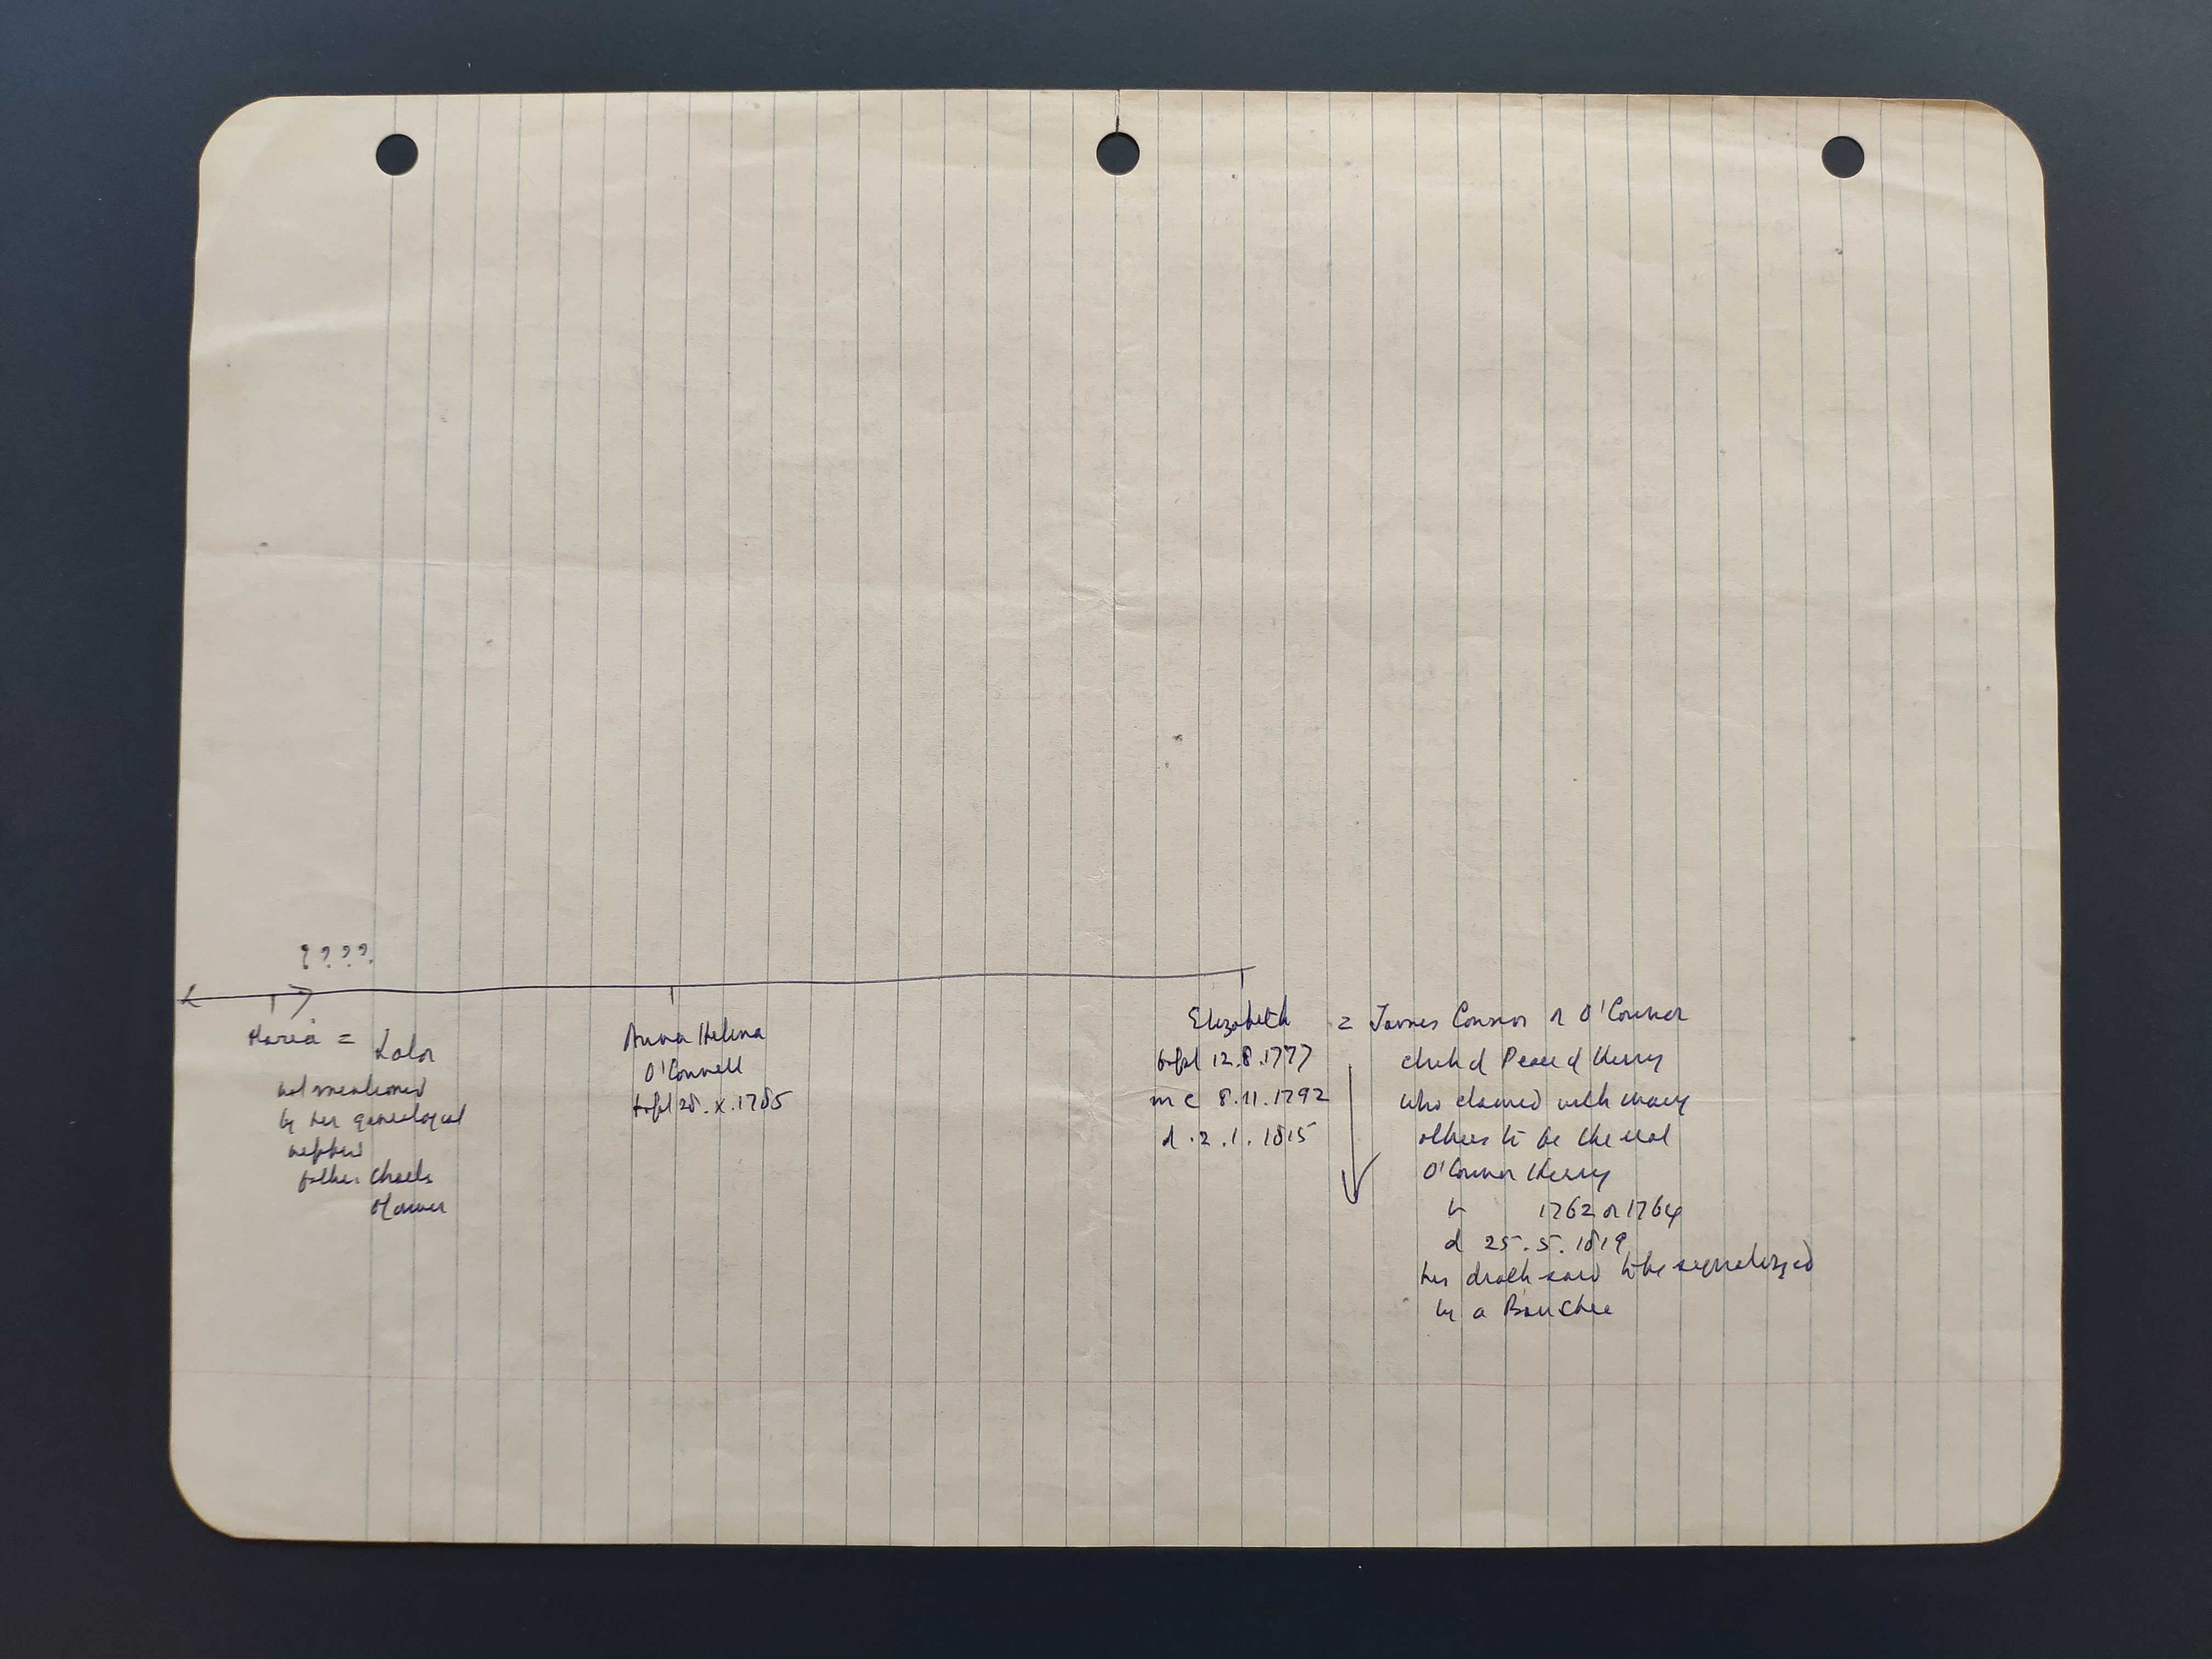 ????
Maria = Lalor
not mentioned
by her genealogical
nephew
father Charles
O'Connor
Anna Helena
O'Connell
bapt 28.x.1785
Elizabeth = James Connor or O'Connor
bapt 12.8.1777
m c 8.11.1792
d.2.1.1815
Clerk of Peace of Kerry
who claimed with many
others to be the real
O'Connor Kerry
b 1762 or 1764
d 25.5.1819
his death said to be signalized
by a Banshee